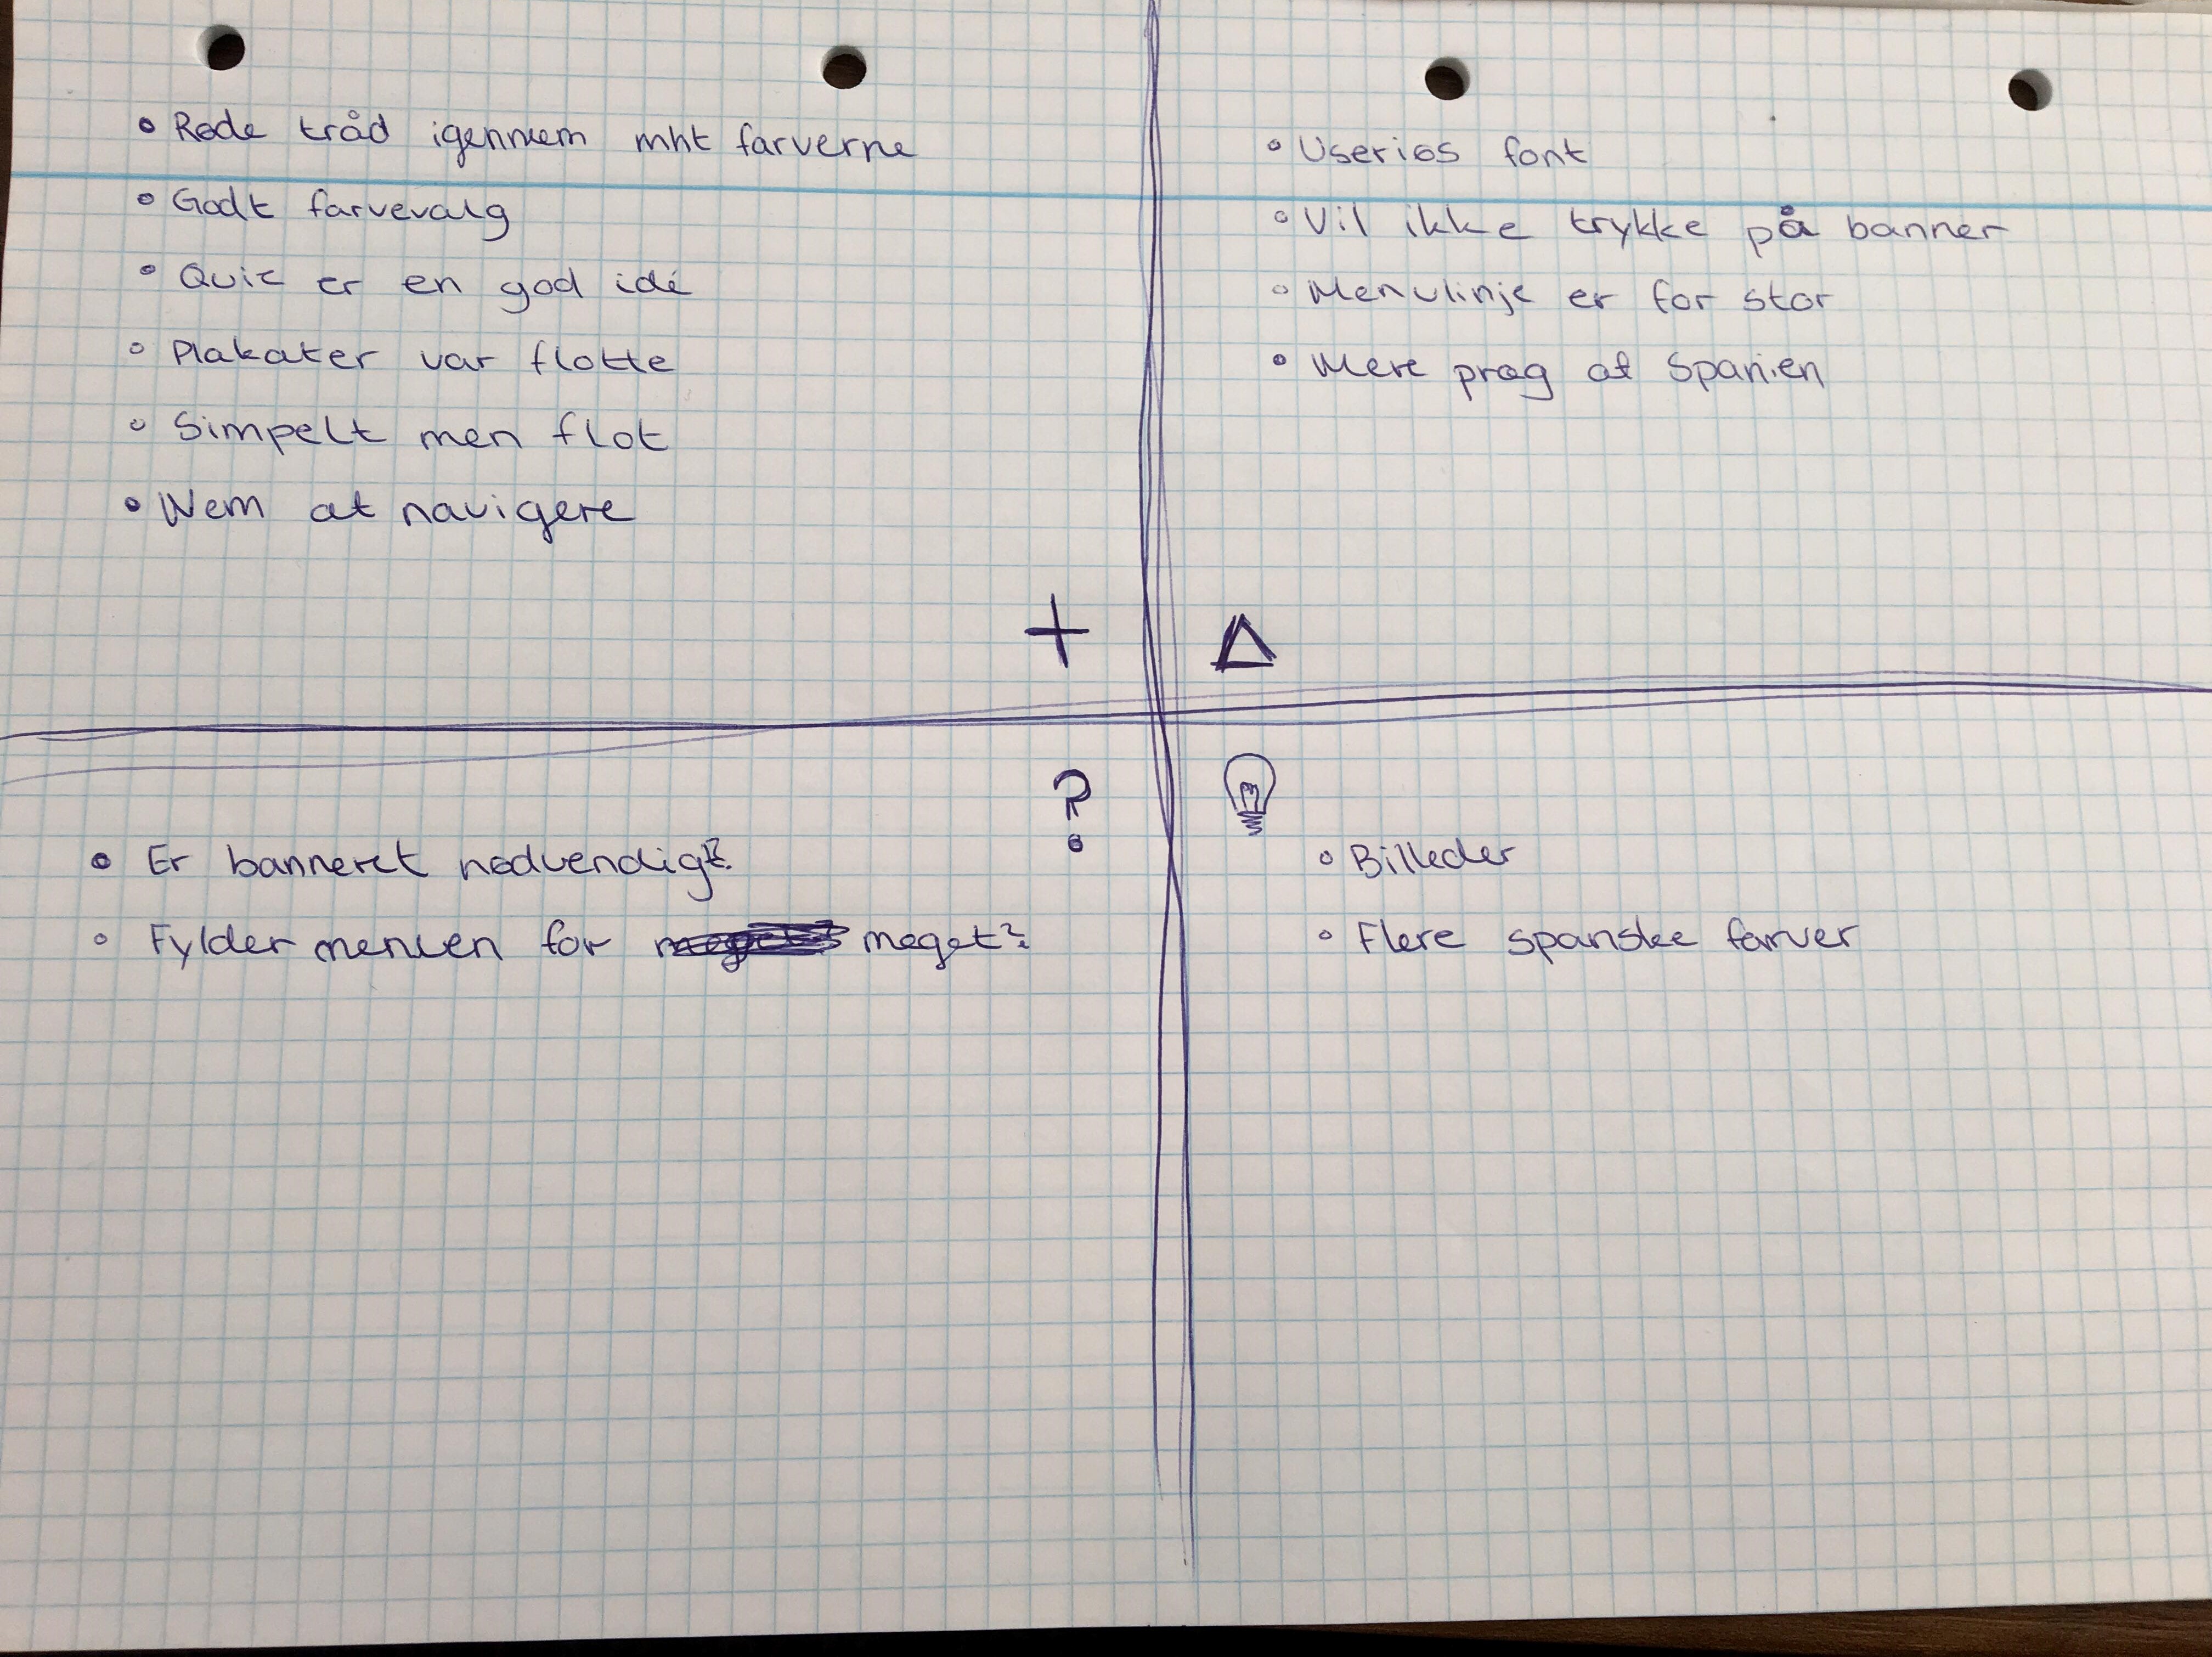 • Røde tråd igennem mht farverne
• Godt farvevalg
• Quiz er en god idé
• Plakater var flotte
• Simpelt men flot
• Nem at navigere
+
• Useriøs font
• Vil ikke trykke på banner
• Menulinje er for stor
• Mere præg af Spanien
Δ
?
• Er banneret nødvendigt?
• Fylder menuen for meget?
• Billeder
• Flere spanske farver